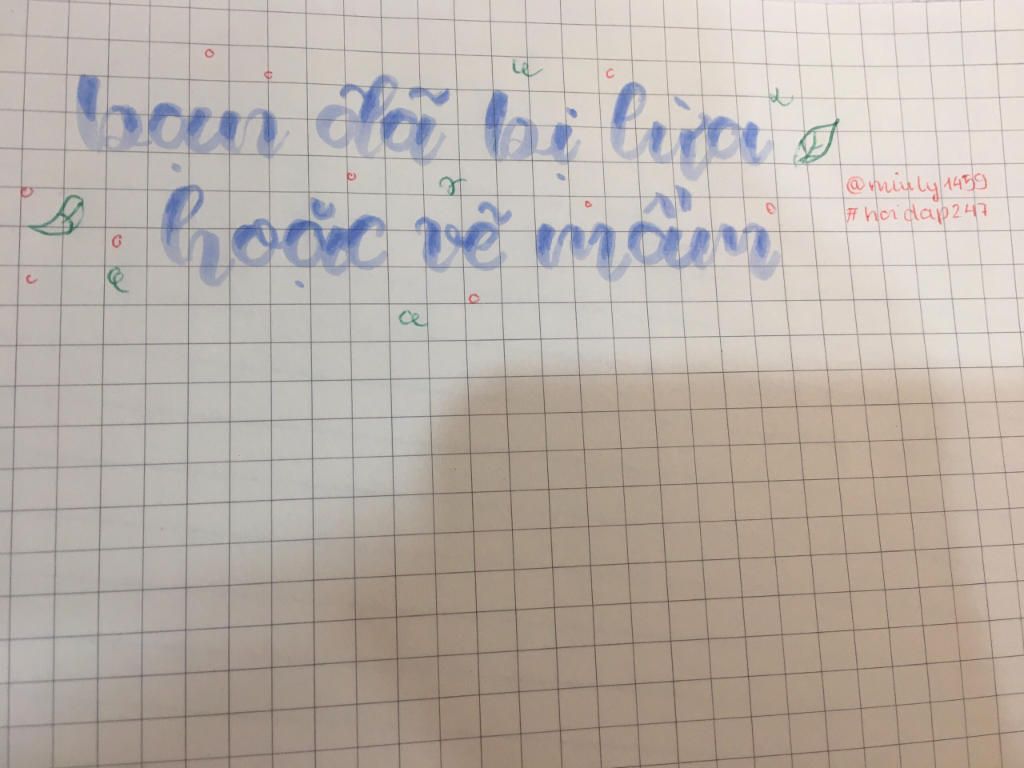 bạn đã bị lừa
hoặc vẽ mầm
@miuly1459
#hoidap247